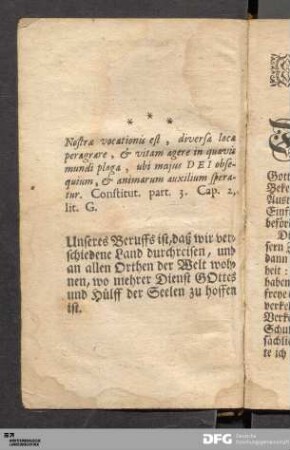 * * *
Nostræ vocationis est, diversa loca
peragrare, & vitam agere in quævis
mundi plaga, ubi majus DEI obse-
quium, & animarum auxilium spera-
tur. Constitut. part. 3. Cap. 2,
lit. G.
Unseres Beruffs ist, daß wir ver-
schiedene Land durchreisen, und
an allen Orthen der Welt woh-
nen, wo mehrer Dienst GOttes
und Hülff der Seelen zu hoffen
ist.
Gott
Beke
Aust
Einfü
beför
Di
sern
dann
heit:
haben
freye
verke
Verke
Schut
sächli
te ich
DFG Deutsche
Forschungsgemeinschaft